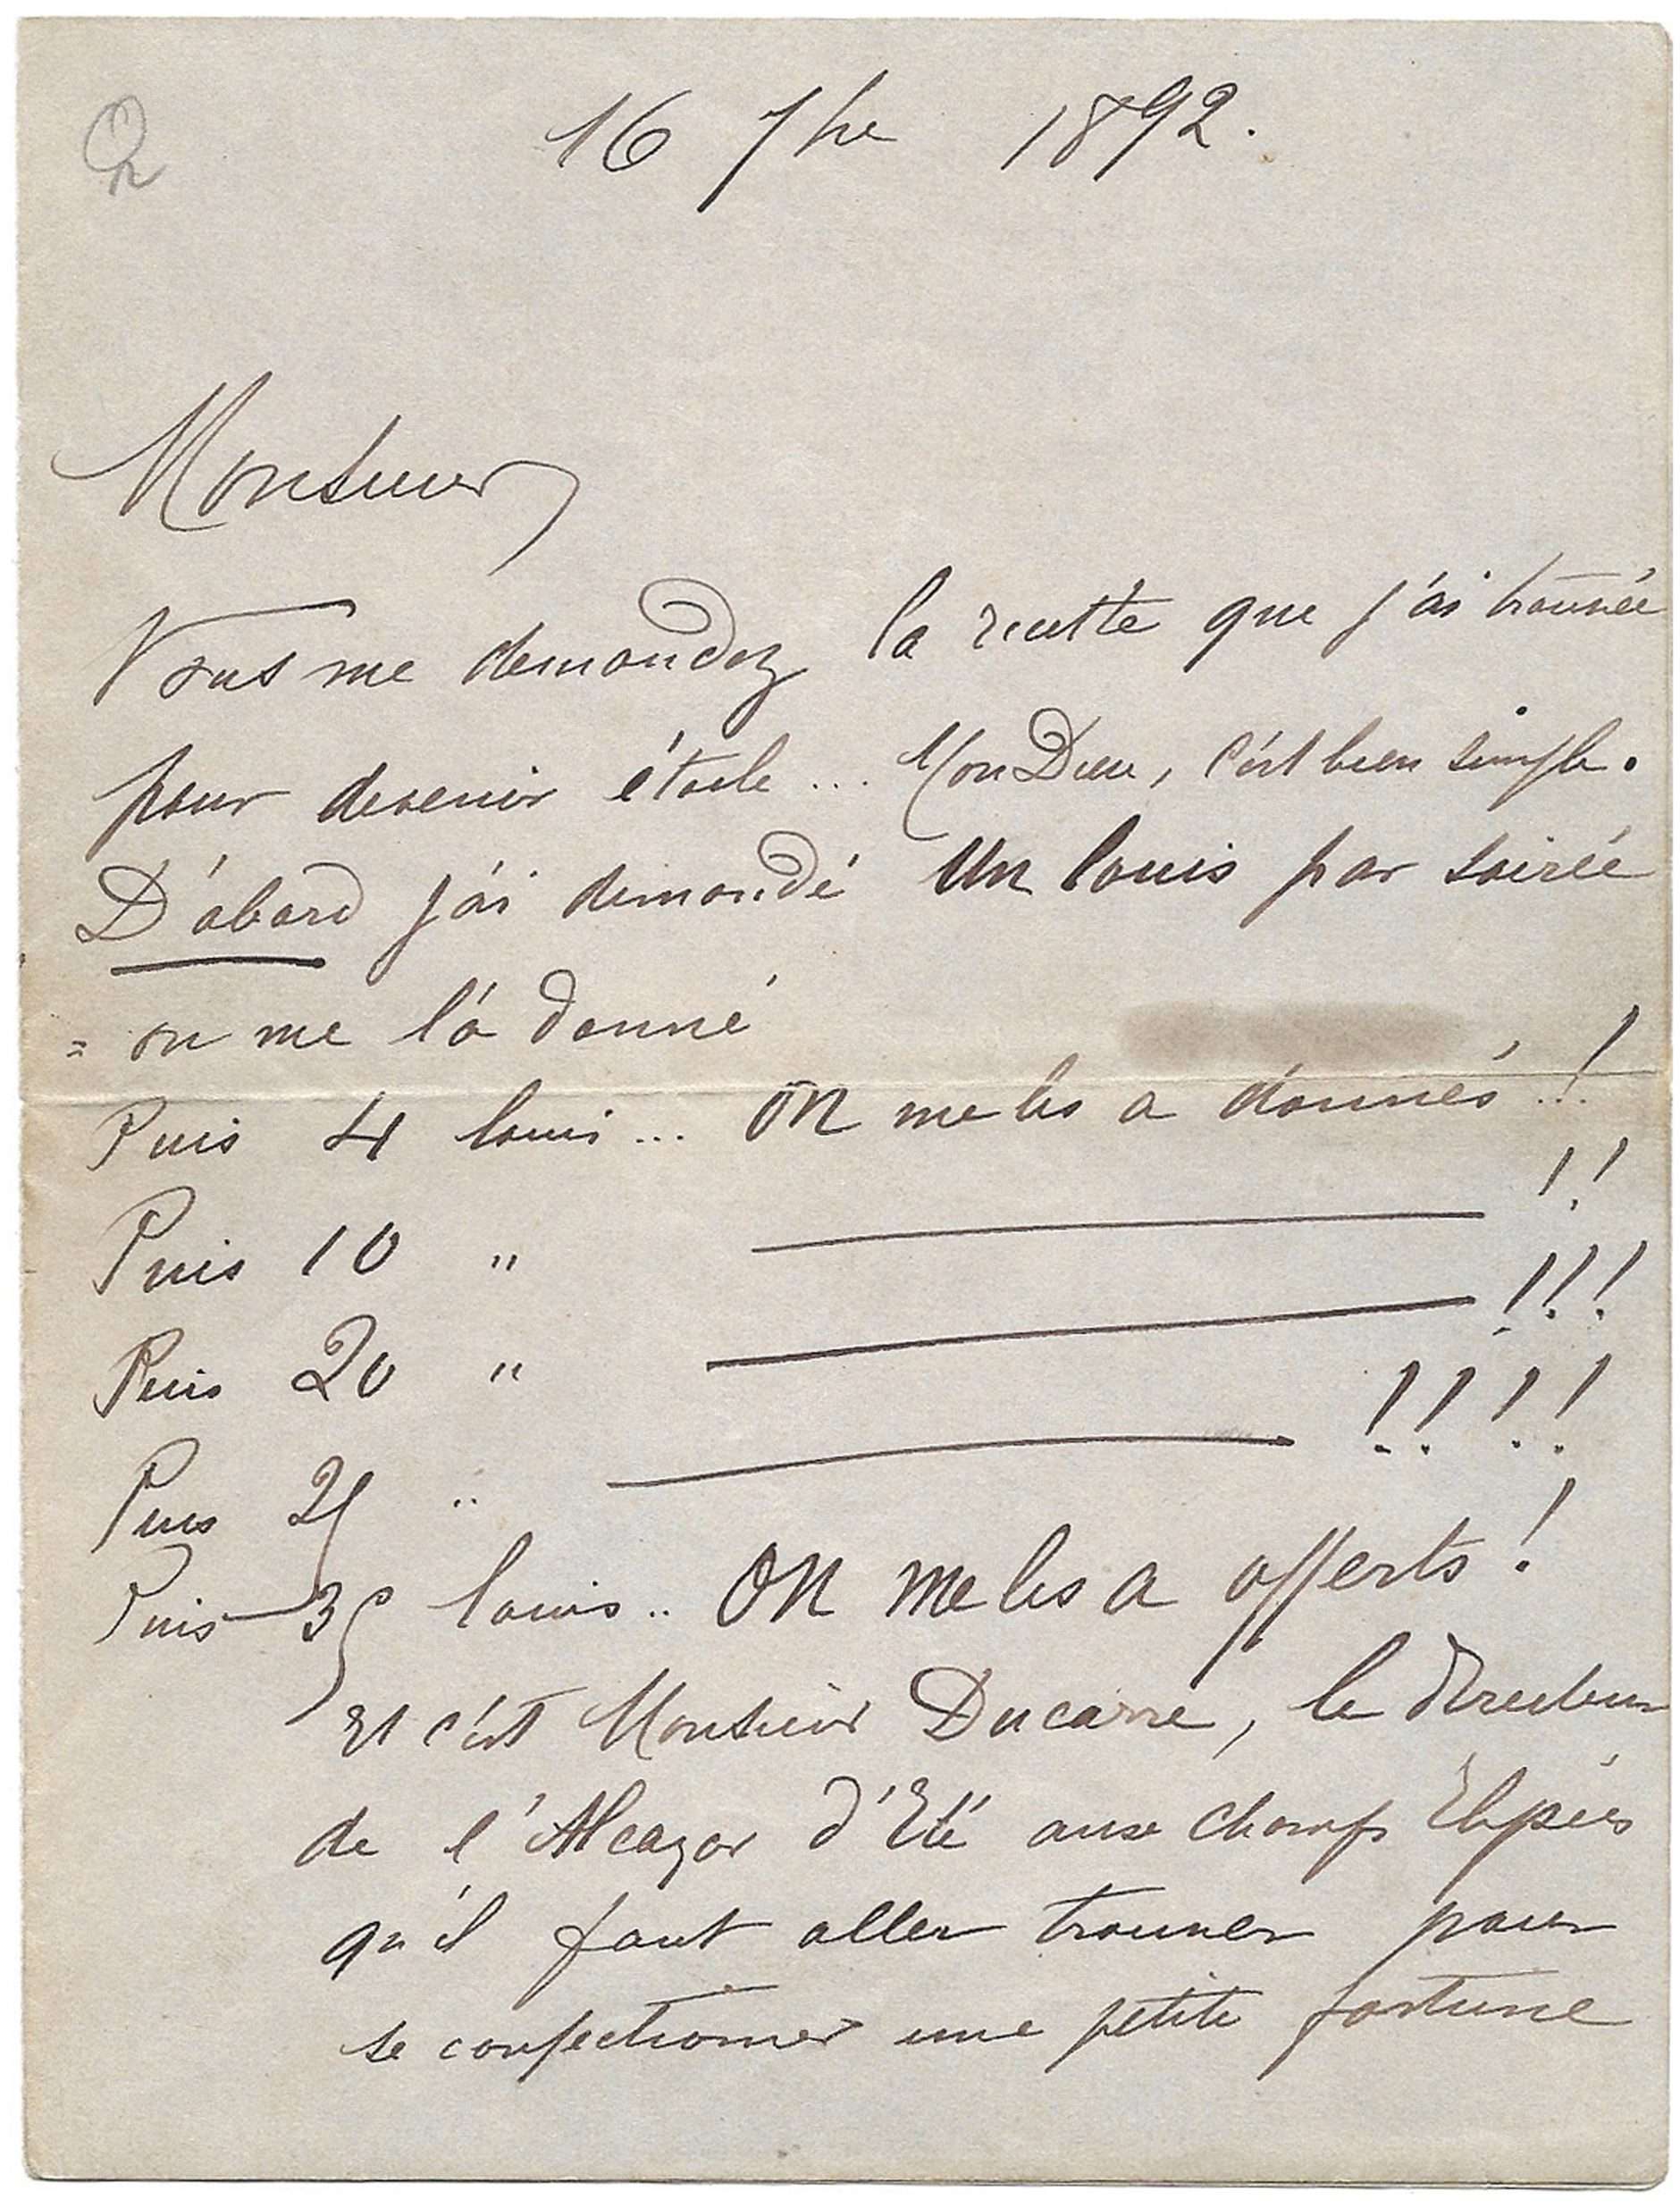 16 7bre 1892.
Monsieur
Vous me demandez la recette que j'ai trouvée
pour devenir étoile... Mon Dieu, c'est bien simple.
D'abord j'ai demandé un louis par soirée
= on me l'a donné
Puis 4 louis... on me les a donnés!
Puis 10 " ——— !!
Puis 20 " ——— !!!
Puis 25 " ——— !!!!
Puis 35 louis.. on me les a offerts!
Et c'est Monsieur Ducarre, le directeur
de l'Alcazar d'Eté aux Champs Elysées
qu'il faut aller trouver pour
se confectionner une petite fortune